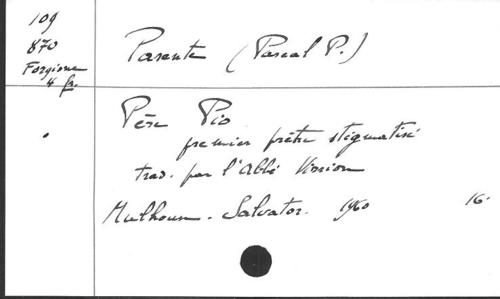 109
870
Forgione
4 fr.
Parente (Pascal P.)
Père Pio
premier prêtre stigmatisé
trad. par l'Abbé
Mulhouse. Salvator. 1960 16.